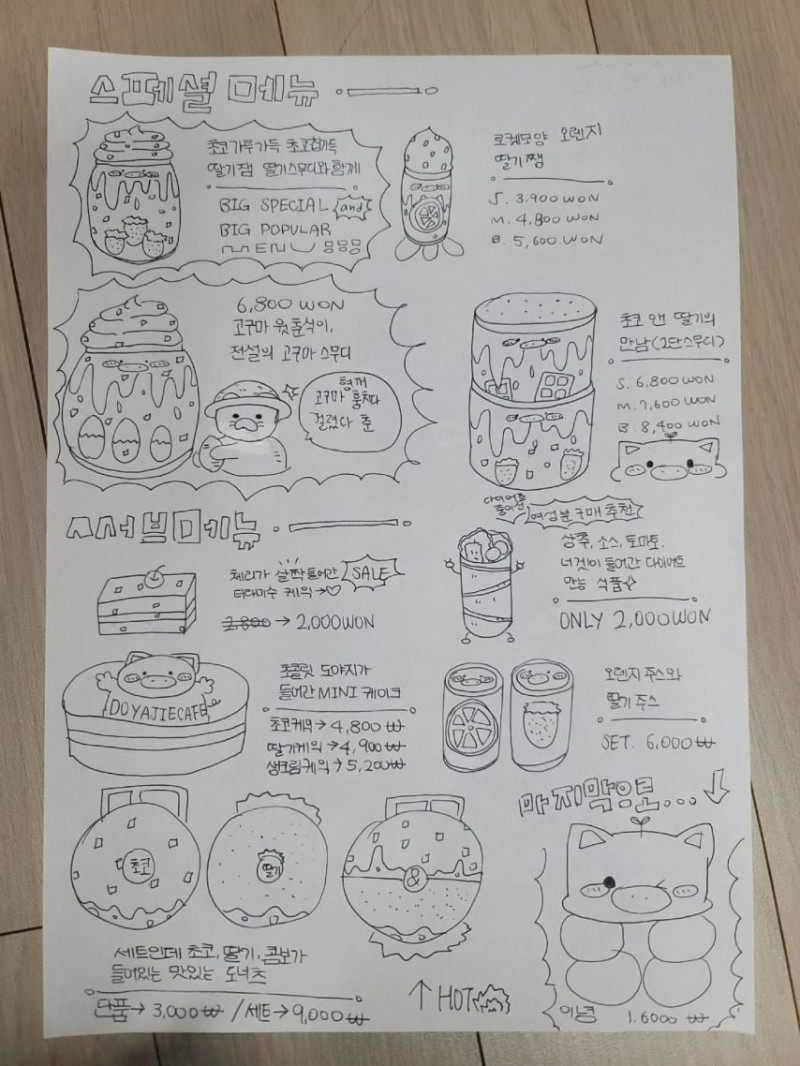 스페셜 메뉴
초코가루가득 초코칩가득
딸기잼 딸기스무디와함께
BIG SPECIAL and
BIG POPULAR
MENU 뭉뭉뭉
로켓모양 오렌지
딸기쨈
S. 3.900 WON
M. 4.800 WON
B. 5,600 WON
6,800 WON
고구마 읏춘식이,
전설의 고구마 스무디
형꺼
고구마 훔치다
걸렸다 춘
초코 앤 딸기의
만남(2단스무디)
S. 6,800 WON
M. 7,600 WON
B. 8,400 WON
서브메뉴
체리가 살짝 들어간 SALE
티라미수 케익→♡
2,800 → 2,000WON
다이어트
중이신 여성분 구매 추천
상추, 소스, 토마토,
너겟이 들어간 다이어트
만능 식품☆
ONLY 2,000WON
DOYAJIECAFE
초콜릿 도야지가
들어간 MINI 케이크
초코케익→4,800₩
딸기케익→4,900₩
생크림케익→5,200₩
오렌지 주스와
딸기 주스
SET. 6,000₩
마지막으로...↓
초코
딸기
&
세트인데 초코, 딸기, 콤보가
들어있는 맛있는 도너츠
단품→ 3,000₩ /세트→9,000₩
↑HOT
인형 1.6000 ₩